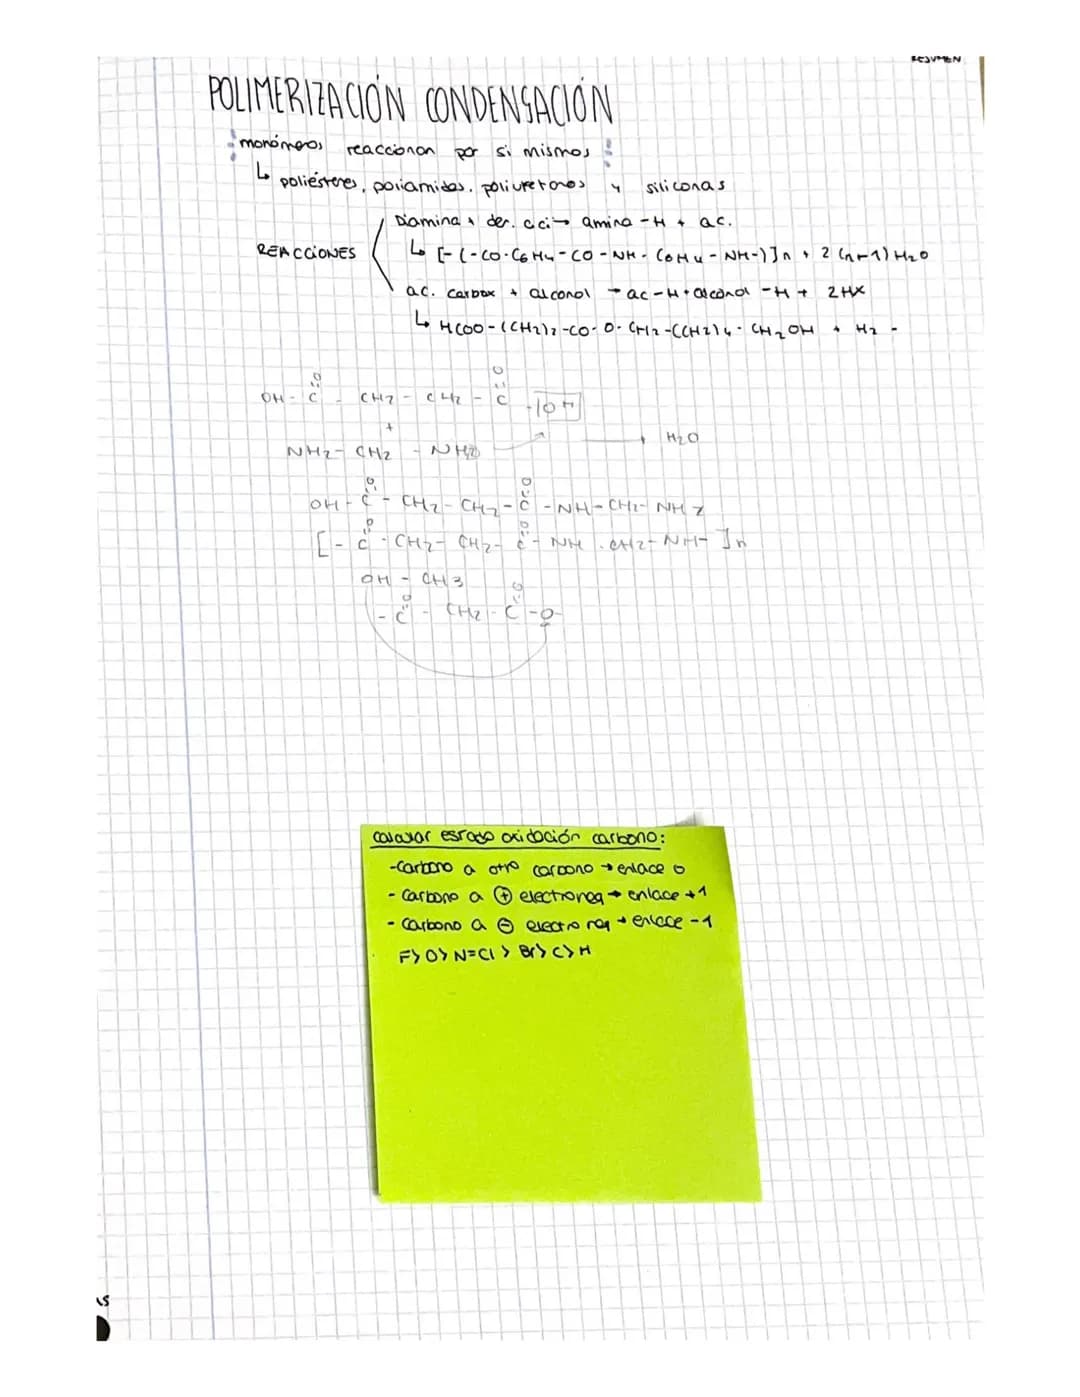 RESUMEN
POLIMERIZACIÓN CONDENSACIÓN
monómeros reaccionan por si mismos
↳ poliésteres, poliamidas, poliuretanos y siliconas
REACCIONES
Diamina + der. aci → amina-H + ac.
↳ [-(-CO-C6H4-CO-NH-C6H4-NH-)]n + 2(n-1)H2O
ac. carbox + alcohol → ac-H+alcohol-H + 2HX
↳ HCOO-(CH2)2-CO-O-CH2-(CH2)4-CH2OH + H2-
O O
OH-C-CH2-CH2-C-OH
+
NH2-CH2-NH2 → H2O
O O
OH-C-CH2-CH2-C-NH-CH2-NH2
O O
[-C-CH2-CH2-C-NH-CH2-NH-]n
OH-CH3
O O
-C-CH2-C-O-
calcular estado oxidación carbono:
-Carbono a otro carbono → enlace 0
- Carbono a ⊕ electroneg → enlace +1
- Carbono a ⊖ electroneg → enlace -1
F>O>N=Cl>Br>C>H
AS